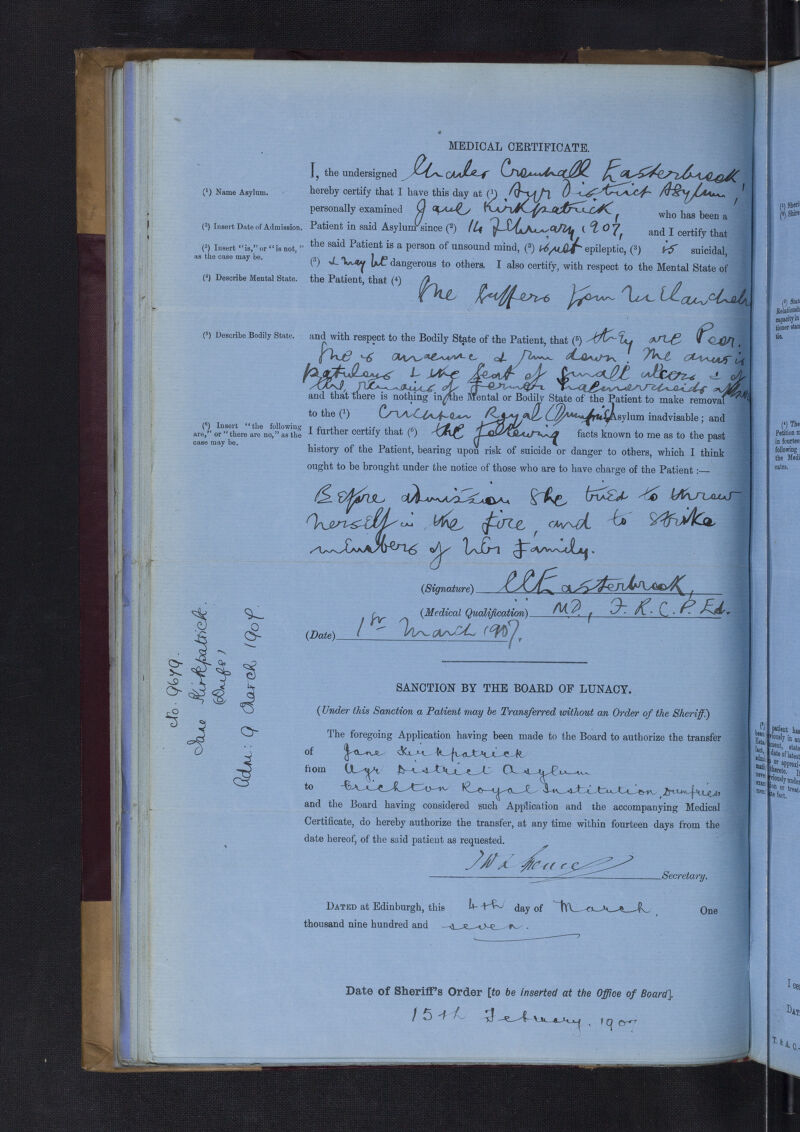 MEDICAL CERTIFICATE.
I, the undersigned Charles Cromhall Easterbrook,
(¹) Name Asylum.
hereby certify that I have this day at (¹) Ayr District Asylum,
personally examined Jane Kirkpatrick, who has been a
(²) Insert Date of Admission.
Patient in said Asylum since (²) 16 February 1907, and I certify that
(³) Insert "is," or "is not," as the case may be.
the said Patient is a person of unsound mind, (³) is not epileptic, (³) is suicidal,
(³) & may be dangerous to others. I also certify, with respect to the Mental State of
(⁴) Describe Mental State.
the Patient, that (⁴)
she suffers from Melancholia
(⁵) Describe Bodily State.
and with respect to the Bodily State of the Patient, that (⁵) they are Poor.
She is anaemic & run down. The anus is
patulous & the seat of small ulcers & of
the remains of former haemorrhoids
and that there is nothing in the Mental or Bodily State of the Patient to make removal
to the (¹) Crichton Royal (Dumfries) Asylum inadvisable; and
(⁶) Insert "the following are," or "there are no," as the case may be.
I further certify that (⁶) the following facts known to me as to the past
history of the Patient, bearing upon risk of suicide or danger to others, which I think
ought to be brought under the notice of those who are to have charge of the Patient:—
Before admission she tried to throw
herself in the fire, and to strike
members of her family.
(Signature) CCEasterbrook,
(Medical Qualification) M.D., F.R.C.P. Ed.
(Date) 1st March 1907.
No. 9679.
Jane Kirkpatrick.
Adm: 9 March 1907.
SANCTION BY THE BOARD OF LUNACY.
(Under this Sanction a Patient may be Transferred without an Order of the Sheriff.)
The foregoing Application having been made to the Board to authorize the transfer
of Jane Kirkpatrick
from Ayr District Asylum
to Crichton Royal Institution, Dumfries
and the Board having considered such Application and the accompanying Medical
Certificate, do hereby authorize the transfer, at any time within fourteen days from the
date hereof, of the said patient as requested.
Secretary.
DATED at Edinburgh, this 4th day of March. One
thousand nine hundred and seven.
Date of Sheriff's Order [to be inserted at the Office of Board].
15th February. 1907